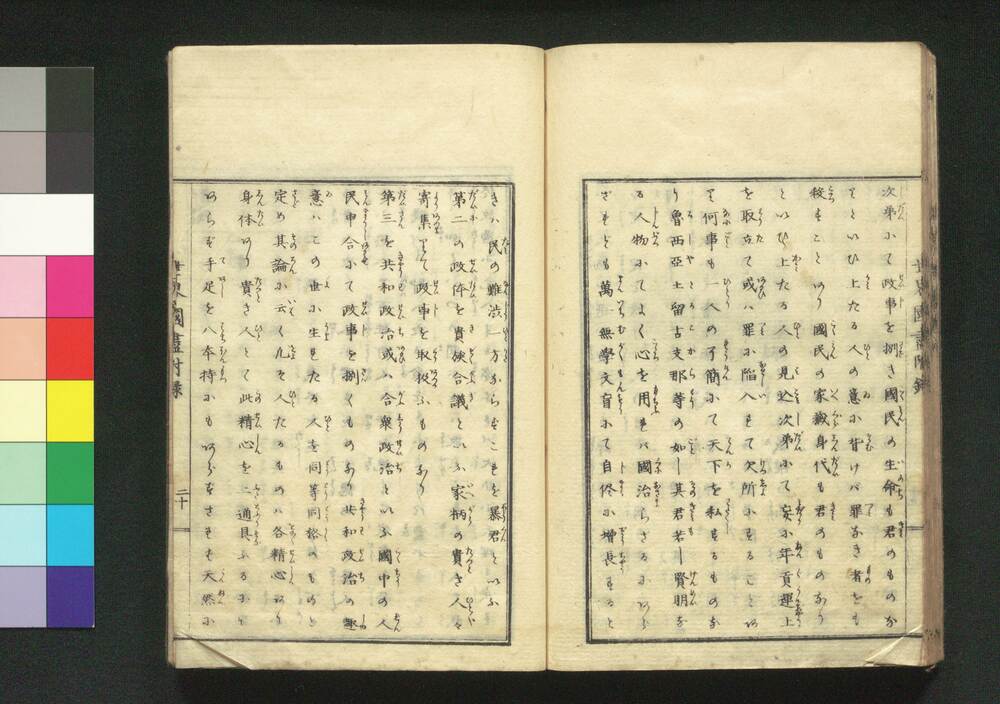 次第にて政事を捌き國民の生命も君のものな
りといひ上たる人の意に背けバ罪なき者をも
殺すことあり國民の家藏身代も君のものなり
といひ上たる人の見込次第にて妄に年貢運上
を取立て或ハ罪に陥入れて欠所にすることあ
り何事も一人の了簡にて天下を私するものな
り魯西亞土留古支那等の如し其君若し賢明な
る人物にてよく心を用れバ國治らざるにあら
ざれども萬一無學文盲にて自侭に増長すると
きハ民の難渋一方ならずこれを暴君といふ
第二の政体を貴族合議といふ家柄の貴き人々
寄集りて政事を取扱ふものあり
第三を共和政治或ハ合衆政治といふ國中の人
民申合にて政事を捌くものなり共和政治の趣
意ハこの世に生れたる人を同等同格のものと
定め其論に云く凡そ人たるものハ各精心あり
身体あり貴き人とて此精心を二通具ふるに
あらず手足を八本持にもあらずされも天然に
世界國盡附録
二十
世界國盡附録